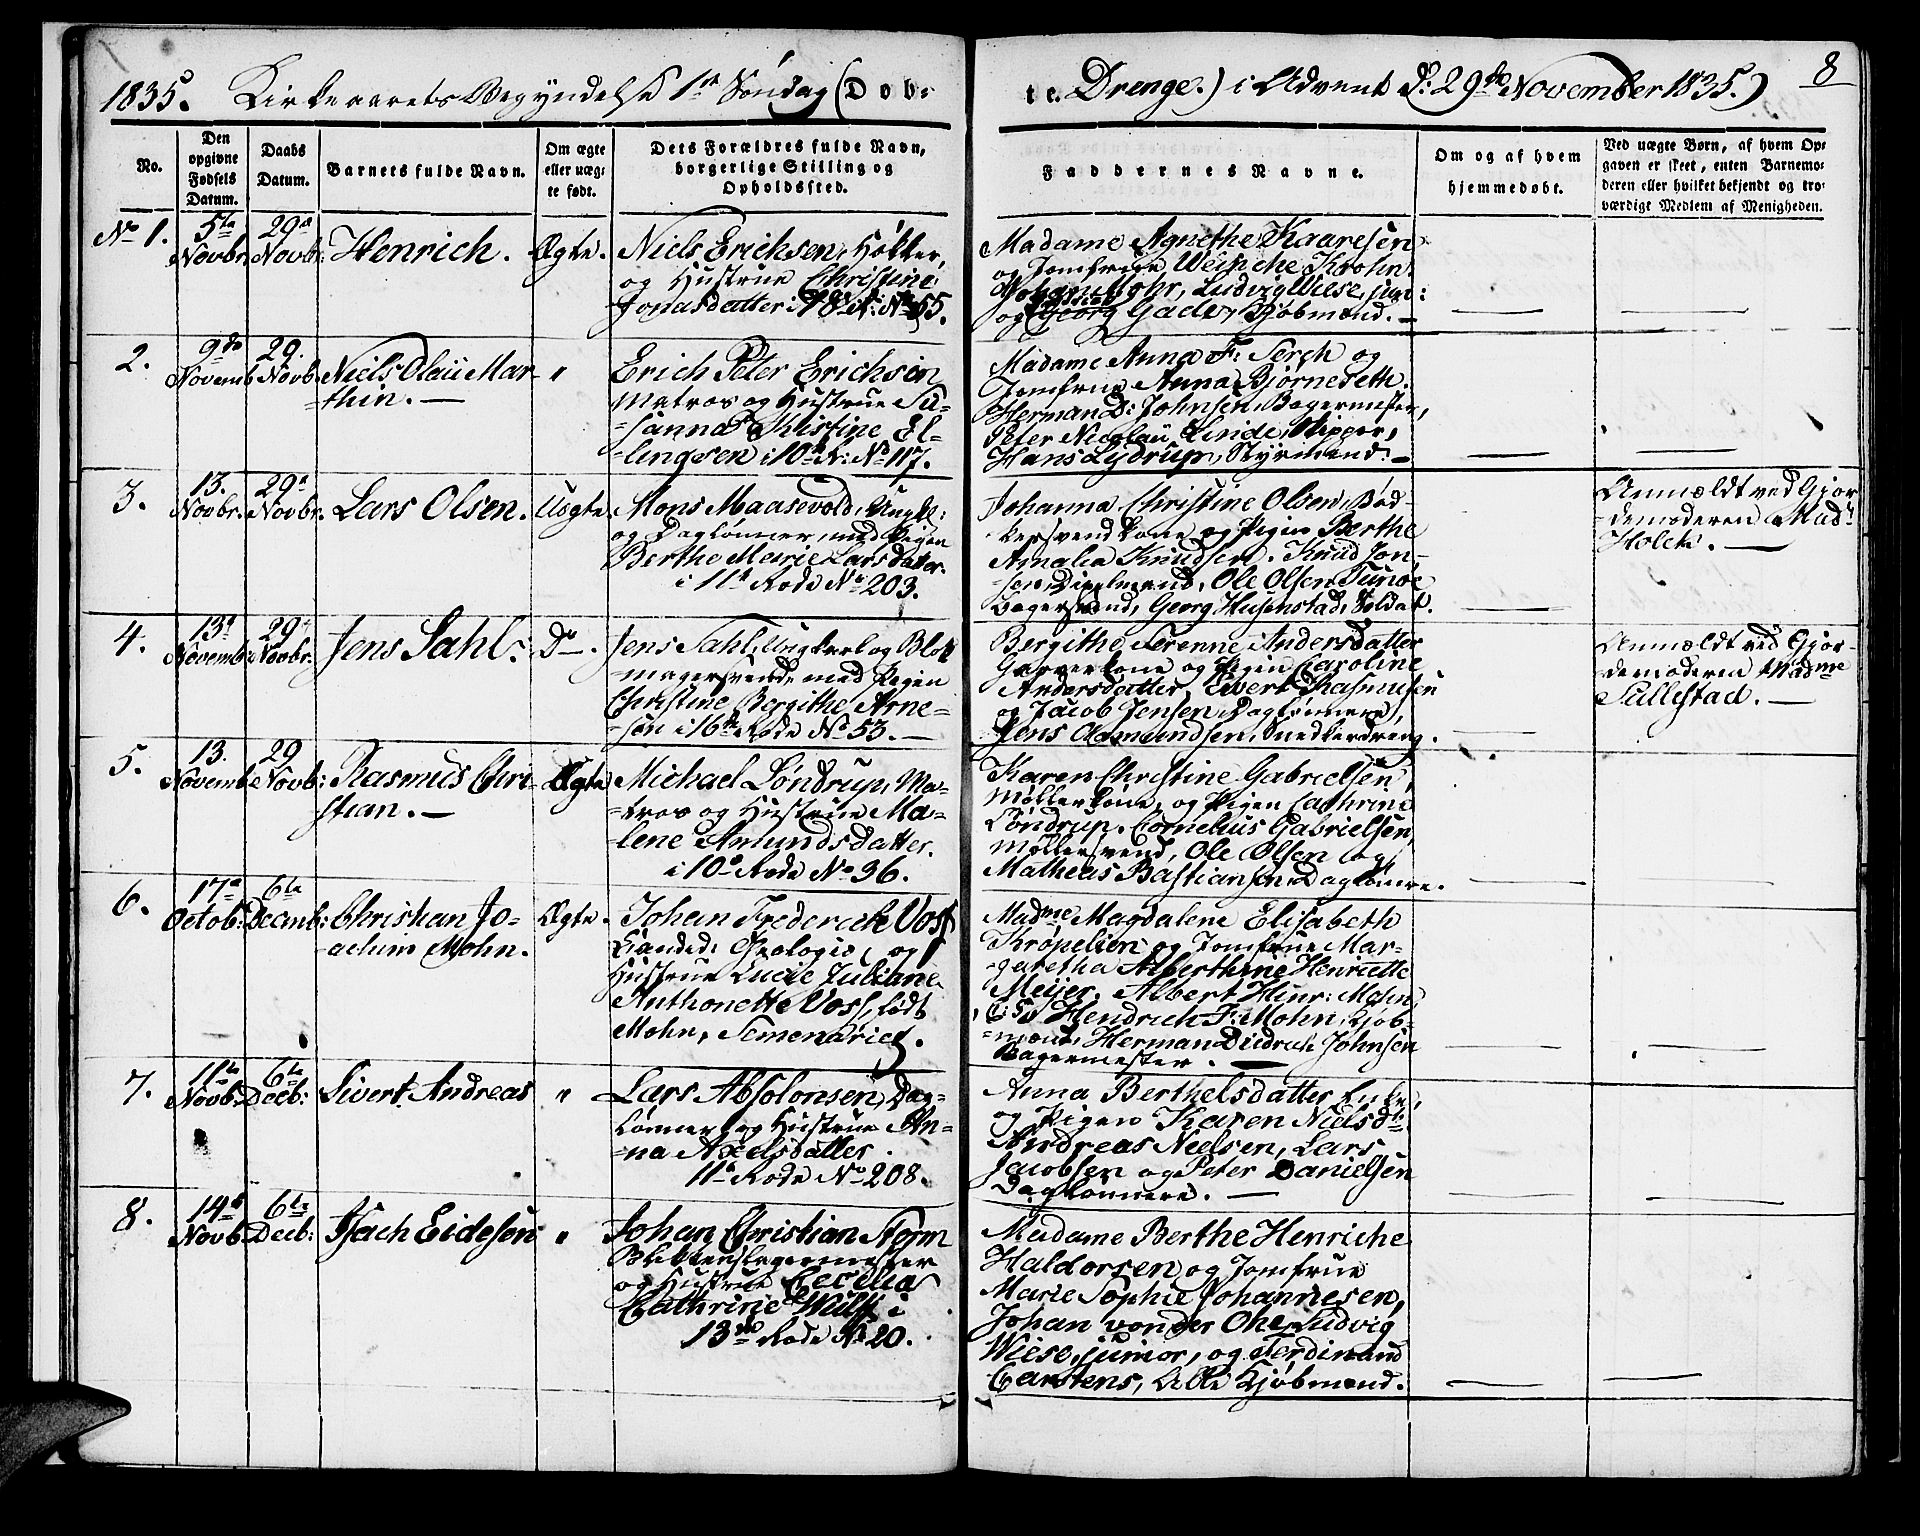 1835. Kirkeaarets Begyndelse 1ste Søndag (Døb-
te Drenge.) i Advent d: 29de November 1835.)
8
No.
Den opgivne Fødsels Datum.
Daabs Datum.
Barnets fulde Navn.
Om ægte eller uæg-
te født.
Dets Forældres fulde Navn,
borgerlige Stilling og
Opholdssted.
Faddernes Navne.
Om og af hvem
hjemmedøbt.
Ved uægte Børn, af hvem Op-
gaven er skeet, enten Barnemo-
deren eller hvilket bekjendt og tro-
værdigt Medlem af Menigheden.
No 1.
5te Novbr.
29de Novbr:
Henrich.
Ægte.
Niels Erichsen, Høkker,
og Hustrue Christine
Jonasdatter i 18de R: No 55.
Madame Agnethe Kaaresen
og Jomfrue Weinche Krohn.
Johan Mohr, Ludvig Wiese, jun:
og Georg Gade, Kjøbmænd. —
2.
9de Novemb
29. Novb.
Niels Olaü Mar-
thin. —
"
Erich Peter Erichsen
Matros og Hustrue Su-
-sanna Christine El-
-lingsen i 10de R: No 117.
Madame Anna F: Serch og
Jomfrue Anna Bjørneseth.
Herman D: Johnsen, Bagermester,
Peter Nicolaü Linde, Skipper,
Hans Lydrup, Styrmand. —
3.
13. Novbr.
29de Novbr.
Lars Olsen.
Uægte.
Mons Maasevold, Ungk:
og Daglønner, med Pigen
Berthe Marie Larsdatter.
i 11te Rode No 203.
Johanna Christine Olsen, Bød-
kersvend Kone og Pigen Berthe
Amalia Knudsen. Knud Jon-
-sen, Ole Olsen Tunøe
Bagersvend, Georg Husenstad, Soldat.
Anmældt ved Gjor-
-demoderen Mad:
Holck. —
4.
13de Novemb:
29de Novbr.
Jens Sahl.
Do.
Jens Sahl, Ungkarl og Blok-
magersvend med Pigen
Christine Bergithe Arne-
-sen i 16de Rode No 53. —
Bergithe Serenne Andersdatter
Garverkone og Pigen Caroline
Andersdatter, Ewert Rasmusen
og Jacob Jensen, Daglønnere,
Jens Aamundsen, Snedkerdreng.
Anmældt ved Gjor-
demoderen Madme
Sullestad. —
5.
13. Novemb
29 Novb:
Rasmus Chri-
stian. —
Ægte
Michael Løndrup, Ma-
-tros og Hustrue Ma-
-lene Amundsdatter.
i 10de Rode No 36.
Karen Christine Gabrielsen,
Møllerkone, og Pigen Cathrine
Løndrup. Cornelius Gabrielsen,
Møllersvend, Ole Olsen og
Matheas Bastiansen, Daglønnere.
6.
17de Octob:
6te Decmb:
Christian Jo-
-achum Mohn.
Ægte.
Johan Frederich Voss
Candid: Theologie, og
Hustrue Lucie Juliane
Anthonette Voss, født
Mohn, Semenariet.
Madme Magdalene Elisabeth
Krøpelien og Jomfrue Mar-
-garetha Alberthine Henriette
Meijer. Albert Hinr: Mohn,
Hendrich F: Mohn, Kjøb-
-mænd, Herman Didrich Johnsen
Bagermester. —
7.
11te Novb:
6te Decb:
Sivert Andreas
"
Lars Absolonsen, Dag-
Lønner, og Hustrue An-
-na Axelsdatter.
11te Rode No 208.
Anna Berthelsdatter Enke,
og Pigen Karen Nielsd:
Andreas Nielsen, Lars
Jacobsen og Peter Danielsen
Daglønnere. —
8.
14de Novb.
6te Decb:
Isach Eidesen
"
Johan Christian Storm
Blikkenslagermester
og Hustrue Cecilia
Cathrine Wulff i
13de Rode No 20.
Madame Berthe Henriche
Haldorsen og Jomfrue
Marie Sophie Johannesen,
Johan vonder Ohe, Ludvig
Wiese, junior, og Ferdinand
Carstens, Alle Kjøbmænd.